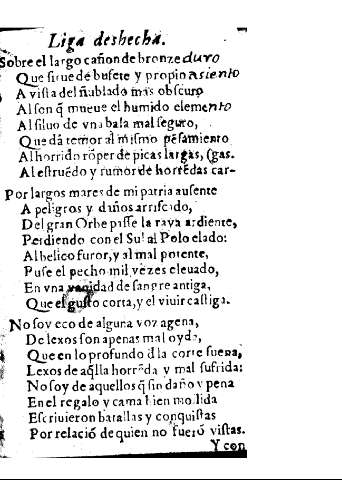 Liga deshecha.
Sobre el largo cañon de bronze duro
Que sirue de bufete y propio asiento
A vista del ñublado mas obscuro
Al son q̃ mueue el humido elemento
Al siluo de vna bala mal seguro,
Que dá temor al mismo pẽsamiento
Al horrido rõper de picas largas, (gas.
Al estruẽdo y rumor de horrẽdas car-
Por largos mares de mi patria ausente
A peligros y daños arriscado,
Del gran Orbe passe la raya ardiente,
Perdiendo con el Sur al Polo elado:
Al belico furor, y al mal potente,
Puse el pecho mil vezes eleuado,
En vna vanidad de sangre antiga,
Que el gusto corta, y el viuir castiga.
No soy eco de alguna voz agena,
De lexos son apenas mal oyda,
Que en lo profundo d̃ la corte suena,
Lexos de aq̃lla horrẽda y mal sufrida:
No soy de aquellos q̃ sin daño y pena
En el regalo y cama bien mollida
Escriuieron batallas y conquistas
Por relació de quien no fueró vistas.
Y con